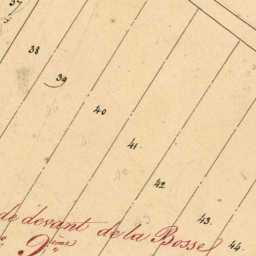 37
38
39
40
41
42
43
44
de devant de la Bosse
2ième